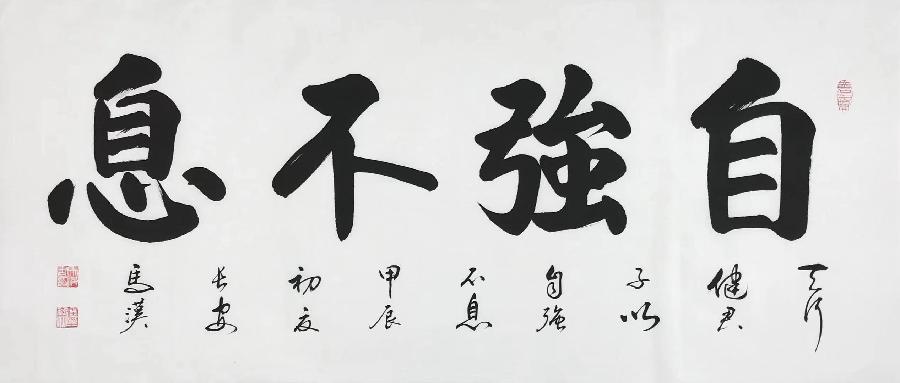 自強不息
天行
健君
子以
自強
不息
甲辰
初夏
長安
馬漢